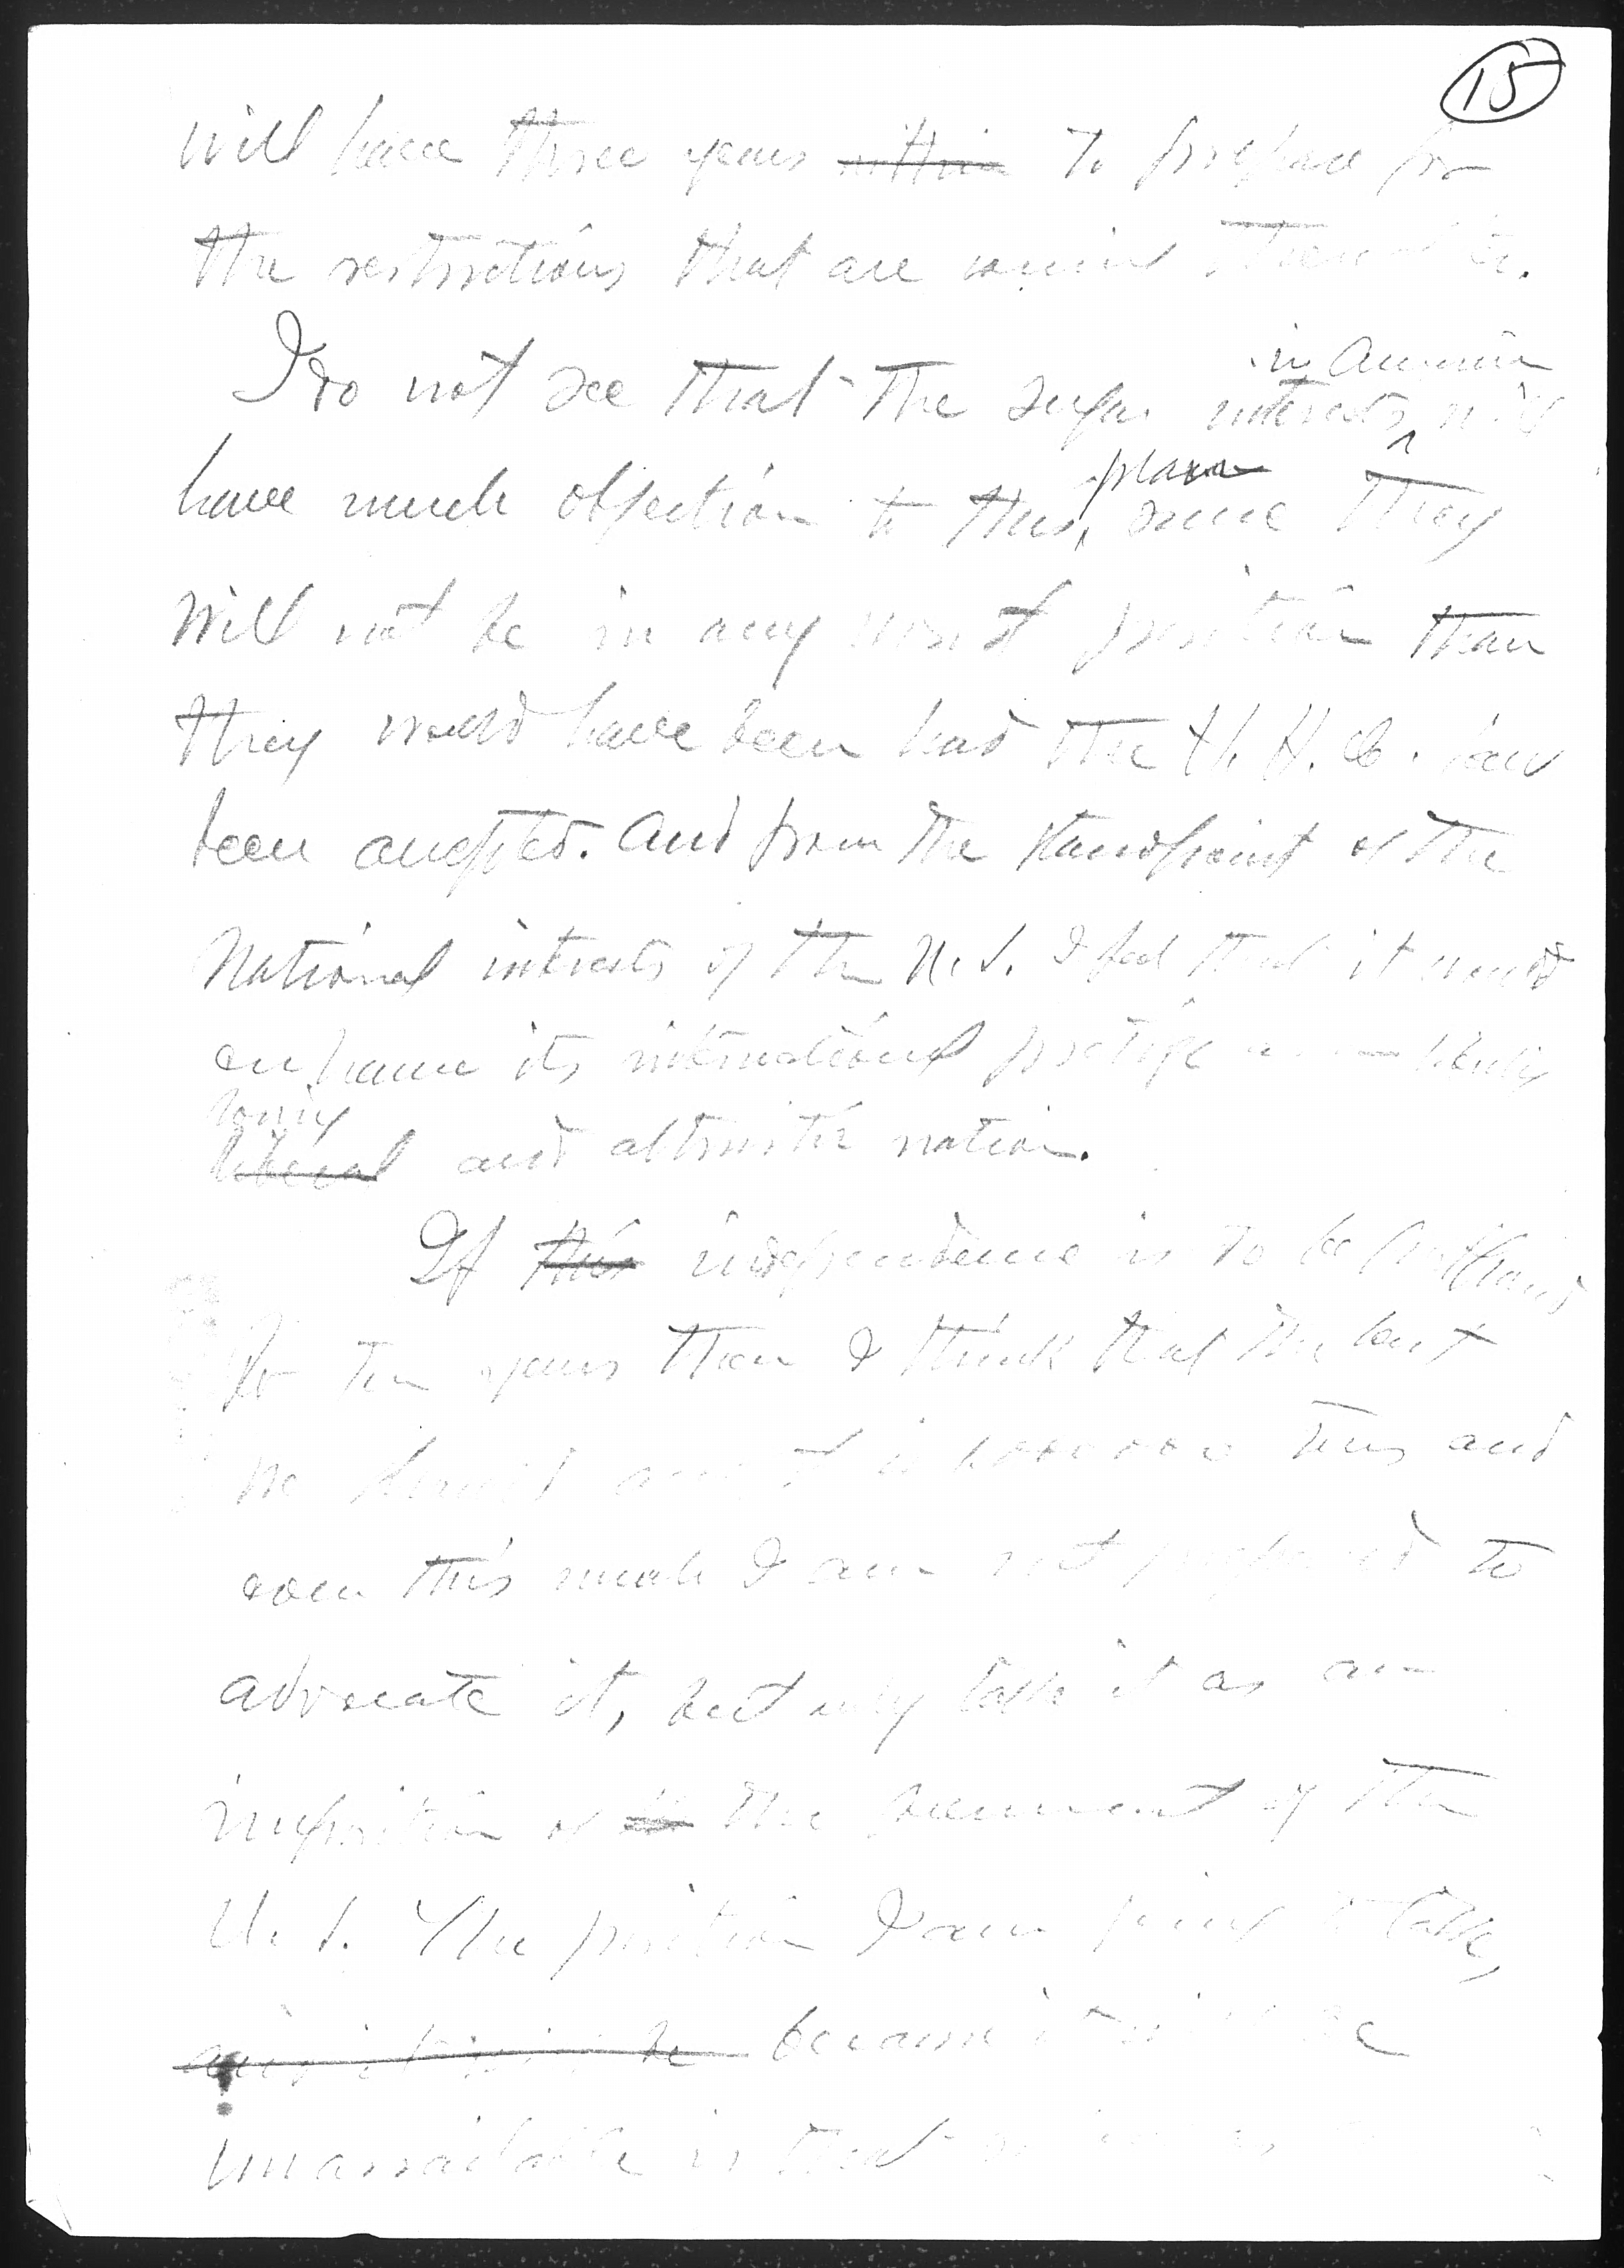 15
will have three years within to prepare for
the restrictions that are coming thereafter.
in America
I do not see that the sugar interests will
plan
have much objection to this, since they
will not be in any worst position than
they would have been had the H. H. C. law
been accepted. And from the standpoint of the
National interests of the U.S. I feel that it would
enhance its international prestige liberty
loving
liberal and altruistic nation.
If this independence is to be
for ten years then I think that the best
we is tons and
even this much I am not prepared to
advocate it, but only take it as an
imposition of the government of the
U.S. The position I am going to take,
and it will be because it will be
unassailable is that